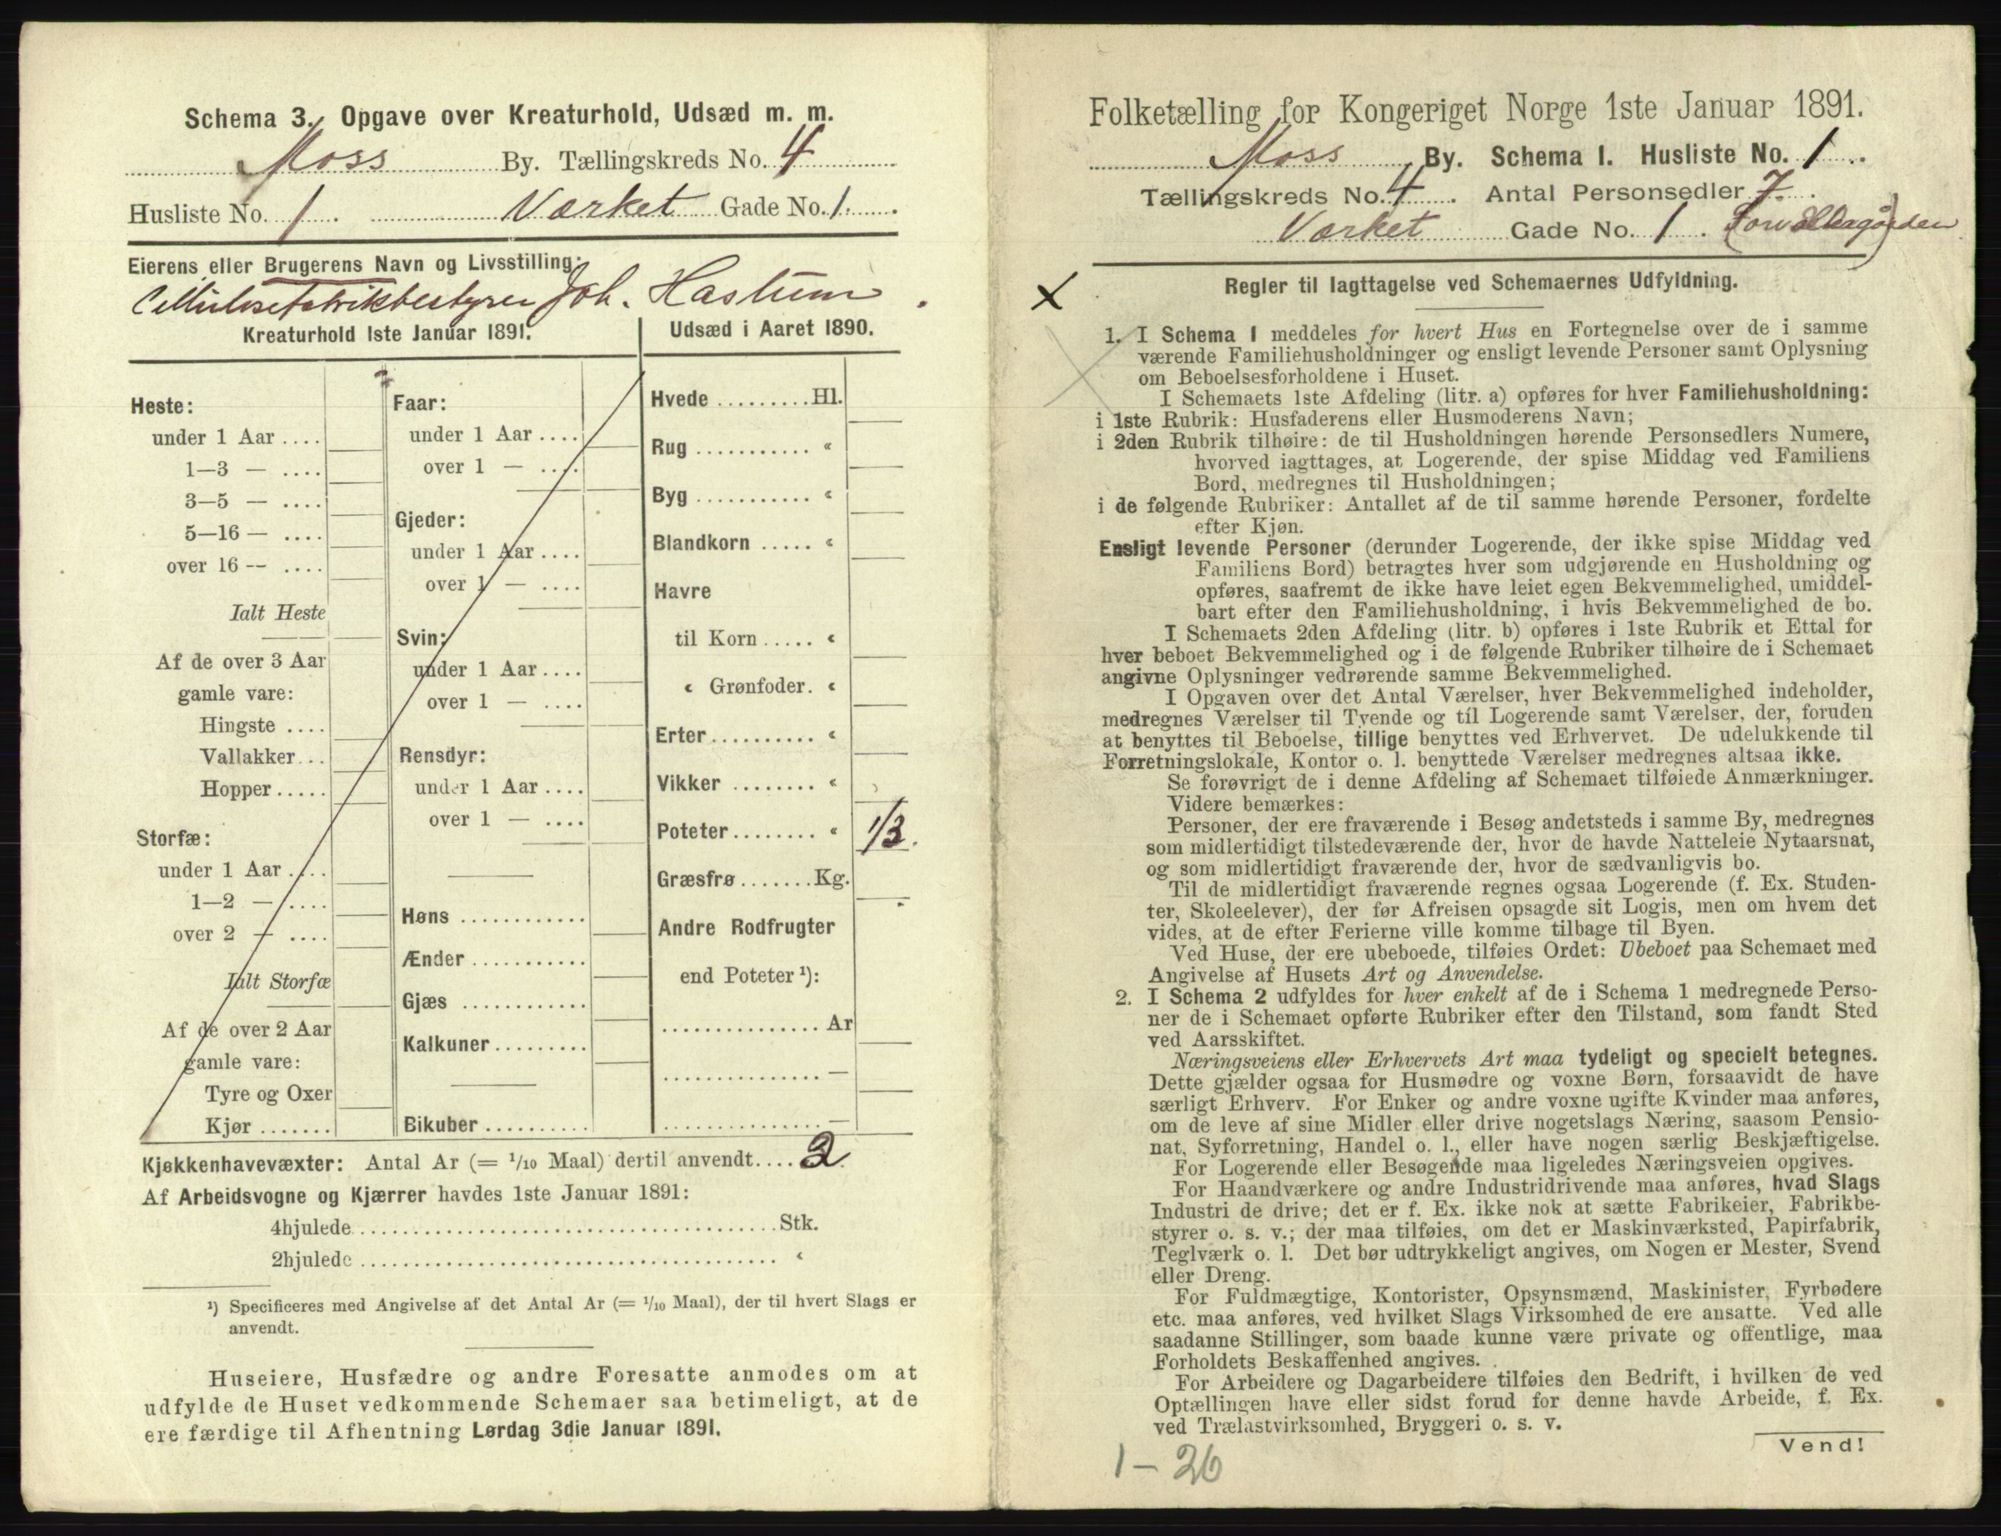 Schema 3. Opgave over Kreaturhold, Udsæd m. m.
Moss By. Tællingskreds No. 4
Husliste No. 1. Værket Gade No. 1.
Eierens eller Brugerens Navn og Livsstilling:
Cellulosefabrikbestyrer Joh. Hastum.
Kreaturhold 1ste Januar 1891.
Heste:
under 1 Aar ....
1—3 — ....
3—5 — ....
5—16 — ....
over 16 — ....
Ialt Heste
Af de over 3 Aar
gamle vare:
Hingste ....
Vallakker...
Hopper .....
Storfæ:
under 1 Aar ....
1—2 — ....
over 2 — ....
Ialt Storfæ
Af de over 2 Aar
gamle vare:
Tyre og Oxer
Kjør .......
Faar:
under 1 Aar ....
over 1 — ....
Gjeder:
under 1 Aar ....
over 1 — ....
Svin:
under 1 Aar ....
over 1 — ....
Rensdyr:
under 1 Aar ....
over 1 — ....
Høns ............
Ænder ...........
Gjæs ............
Kalkuner.........
Bikuber ..........
Udsæd i Aaret 1890.
Hvede ......... Hl.
Rug ........... “
Byg ........... “
Blandkorn ..... “
Havre
til Korn ..... “
“ Grønfoder. “
Erter.......... “
Vikker ........ “
Poteter........ “ 1/3.
Græsfrø ....... Kg.
Andre Rodfrugter
end Poteter ¹):
............... Ar
............... —
............... —
Kjøkkenhavevæxter: Antal Ar (= 1/10 Maal) dertil anvendt.... 2.
Af Arbeidsvogne og Kjærrer havdes 1ste Januar 1891:
4hjulede ........................................ Stk.
2hjulede ........................................ “
¹) Specificeres med Angivelse af det Antal Ar (= 1/10 Maal), der til hvert Slags er
anvendt.
Huseiere, Husfædre og andre Foresatte anmodes om at
udfylde de Huset vedkommende Schemaer saa betimeligt, at de
ere færdige til Afhentning Lørdag 3die Januar 1891.
Folketælling for Kongeriget Norge 1ste Januar 1891.
Moss By. Schema 1. Husliste No. 1.
Tællingskreds No. 4. Antal Personsedler 7.
Værket Gade No. 1. (Forvaltergården)
Regler til Iagttagelse ved Schemaernes Udfyldning.
1. I Schema 1 meddeles for hvert Hus en Fortegnelse over de i samme
værende Familiehusholdninger og ensligt levende Personer samt Oplysning
om Beboelsesforholdene i Huset.
I Schemaets 1ste Afdeling (litr. a) opføres for hver Familiehusholdning:
i 1ste Rubrik: Husfaderens eller Husmoderens Navn;
i 2den Rubrik tilhøire: de til Husholdningen hørende Personsedlers Numere,
hvorved iagttages, at Logerende, der spise Middag ved Familiens
Bord, medregnes til Husholdningen;
i de følgende Rubriker: Antallet af de til samme hørende Personer, fordelte
efter Kjøn.
Ensligt levende Personer (derunder Logerende, der ikke spise Middag ved
Familiens Bord) betragtes hver som udgjørende en Husholdning og
opføres, saafremt de ikke have leiet egen Bekvemmelighed, umiddel-
bart efter den Familiehusholdning, i hvis Bekvemmelighed de bo.
I Schemaets 2den Afdeling (litr. b) opføres i 1ste Rubrik et Ettal for
hver beboet Bekvemmelighed og i de følgende Rubriker tilhøire de i Schemaet
angivne Oplysninger vedrørende samme Bekvemmelighed.
I Opgaven over det Antal Værelser, hver Bekvemmelighed indeholder,
medregnes Værelser til Tyende og til Logerende samt Værelser, der, foruden
at benyttes til Beboelse, tillige benyttes ved Erhvervet. De udelukkende til
Forretningslokale, Kontor o. l. benyttede Værelser medregnes altsaa ikke.
Se forøvrigt de i denne Afdeling af Schemaet tilføiede Anmærkninger.
Videre bemærkes:
Personer, der ere fraværende i Besøg andetsteds i samme By, medregnes
som midlertidigt tilstedeværende der, hvor de havde Natteleie Nytaarsnat,
og som midlertidigt fraværende der, hvor de sædvanligvis bo.
Til de midlertidigt fraværende regnes ogsaa Logerende (f. Ex. Studen-
ter, Skoleelever), der før Afreisen opsagde sit Logis, men om hvem det
vides, at de efter Ferierne ville komme tilbage til Byen.
Ved Huse, der ere ubeboede, tilføies Ordet: Ubeboet paa Schemaet med
Angivelse af Husets Art og Anvendelse.
2. I Schema 2 udfyldes for hver enkelt af de i Schema 1 medregnede Perso-
ner de i Schemaet opførte Rubriker efter den Tilstand, som fandt Sted
ved Aarsskiftet.
Næringsveiens eller Erhvervets Art maa tydeligt og specielt betegnes.
Dette gjælder ogsaa for Husmødre og voxne Børn, forsaavidt de have
særligt Erhverv. For Enker og andre voxne ugifte Kvinder maa anføres,
om de leve af sine Midler eller drive nogetslags Næring, saasom Pensio-
nat, Syforretning, Handel o. l., eller have nogen særlig Beskjæftigelse.
For Logerende eller Besøgende maa ligeledes Næringsveien opgives.
For Haandværkere og andre Industridrivende maa anføres, hvad Slags
Industri de drive; det er f. Ex. ikke nok at sætte Fabrikeier, Fabrikbe-
styrer o. s. v.; der maa tilføies, om det er Maskinværksted, Papirfabrik,
Teglværk o. l. Det bør udtrykkeligt angives, om Nogen er Mester, Svend
eller Dreng.
For Fuldmægtige, Kontorister, Opsynsmænd, Maskinister, Fyrbødere
etc. maa anføres, ved hvilket Slags Virksomhed de ere ansatte. Ved alle
saadanne Stillinger, som baade kunne være private og offentlige, maa
Forholdets Beskaffenhed angives.
For Arbeidere og Dagarbeidere tilføies den Bedrift, i hvilken de ved
Optællingen have eller sidst forud for denne havde Arbeide, f. Ex.
ved Trælastvirksomhed, Bryggeri o. s. v.
Vend!
1 — 26